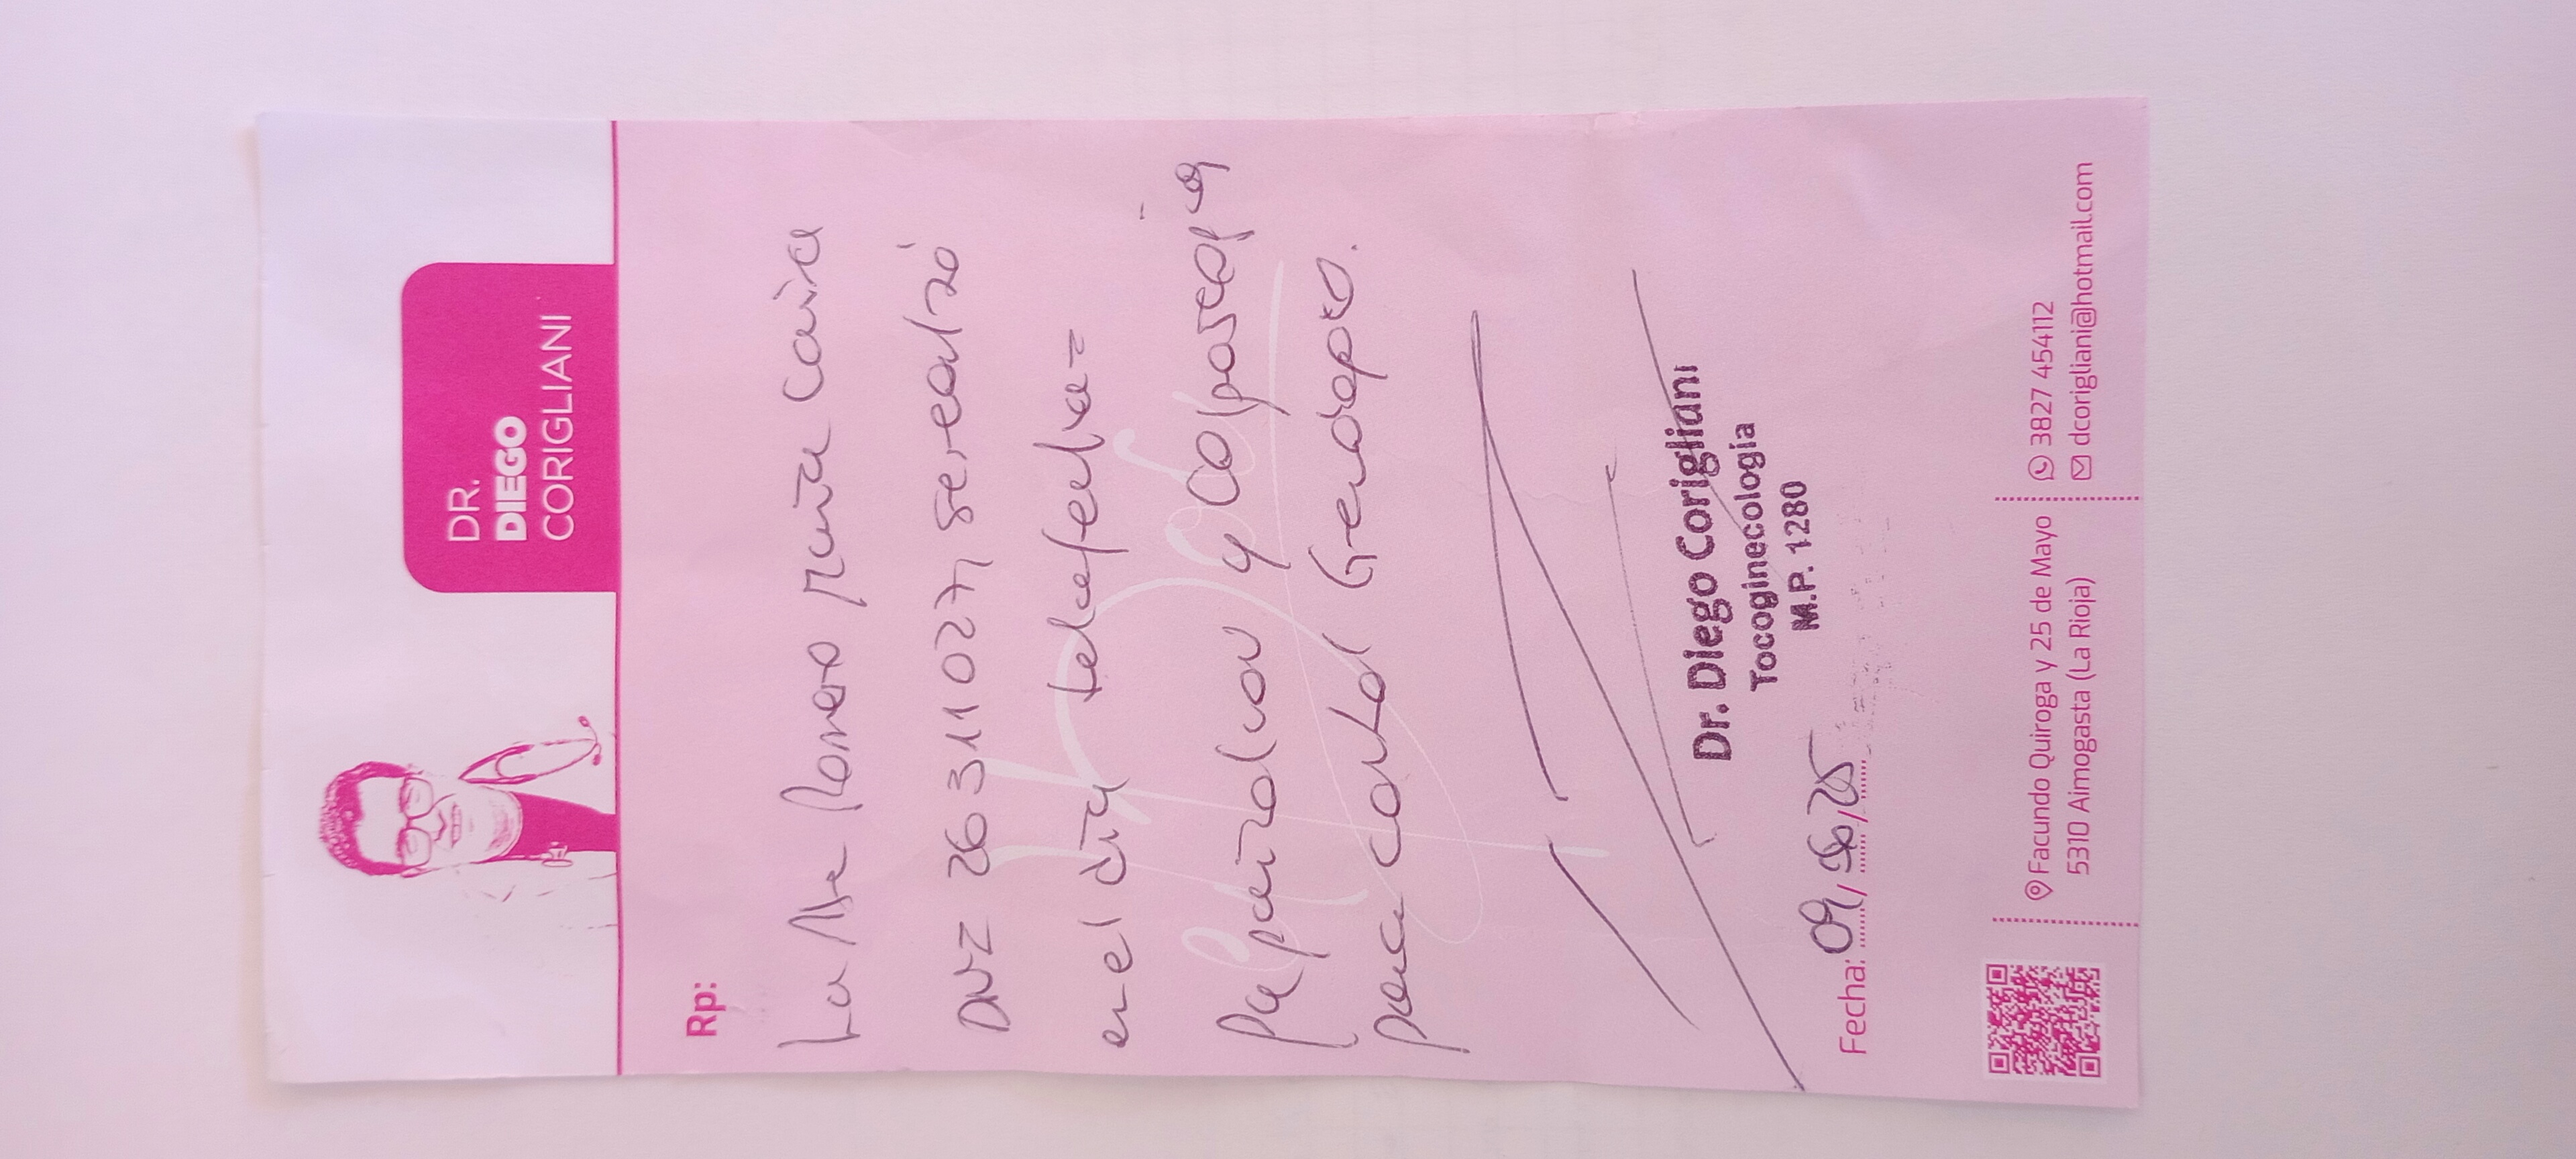 DR.
DIEGO
CORIGLIANI
Rp:
La Sra Romero María
DNI 26311027, se realzó
en el día de la fecha =
Papanicolau y Colposcopia
para control Ginecologico.
Dr. Diego Corigliani
Tocoginecologia
M.P. 1280
Fecha: 09/06/25
Facundo Quiroga y 25 de Mayo
5310 Aimogasta (La Rioja)
3827 454112
dcorigliani@hotmail.com